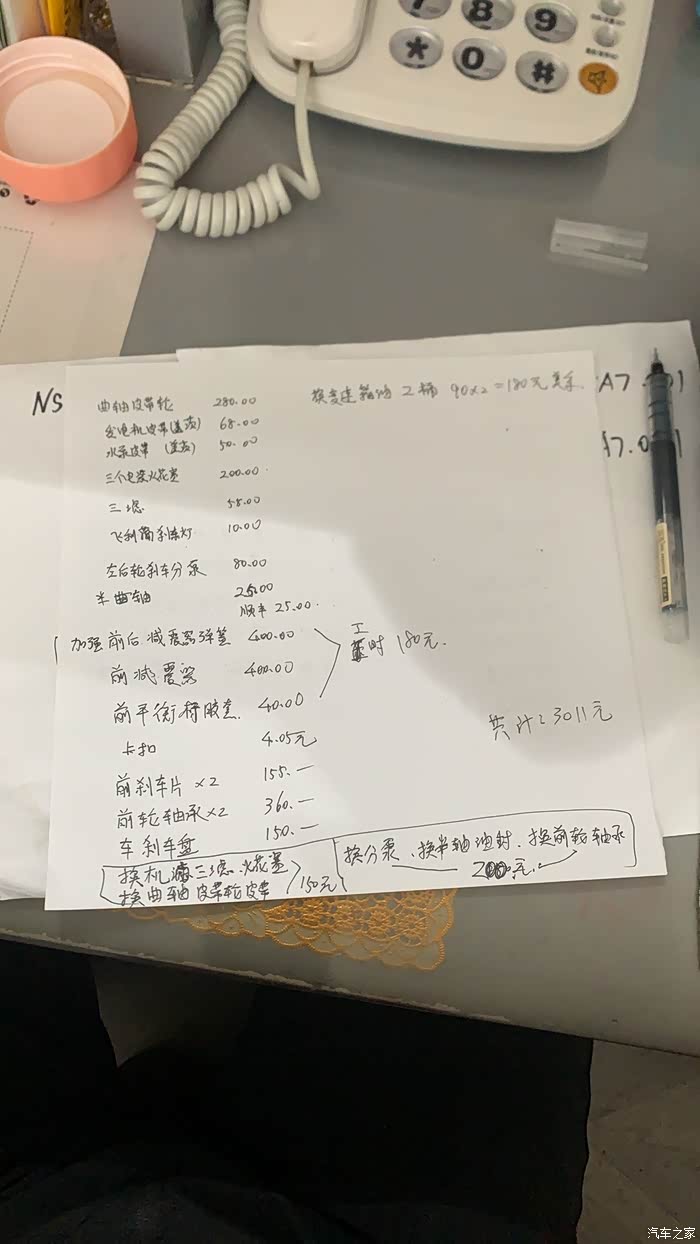 7 8 9
* 0 #
NS
A7.
17.0
曲轴皮带轮 280.00
换变速箱油 2桶 90×2=180元
发电机皮带(盖茨) 68.00
水泵皮带 (盖茨) 50.00
三个电装火花塞 200.00
三滤 55.00
飞利浦刹车灯 10.00
左后轮刹车分泵 80.00
半曲轴 25.00
顺丰 25.00
加强前后减震器弹簧 400.00
前减震器 400.00
工时 180元.
前平衡杆胶套 40.00
卡扣 4.05元
共计:3011元
前刹车片×2 155.—
前轮轴承×2 360.—
车刹车盘 150.—
换机 三滤.火花塞
换曲轴皮带轮皮带
150元
换分泵、换半轴油封.换前轮轴承
200元
汽车之家